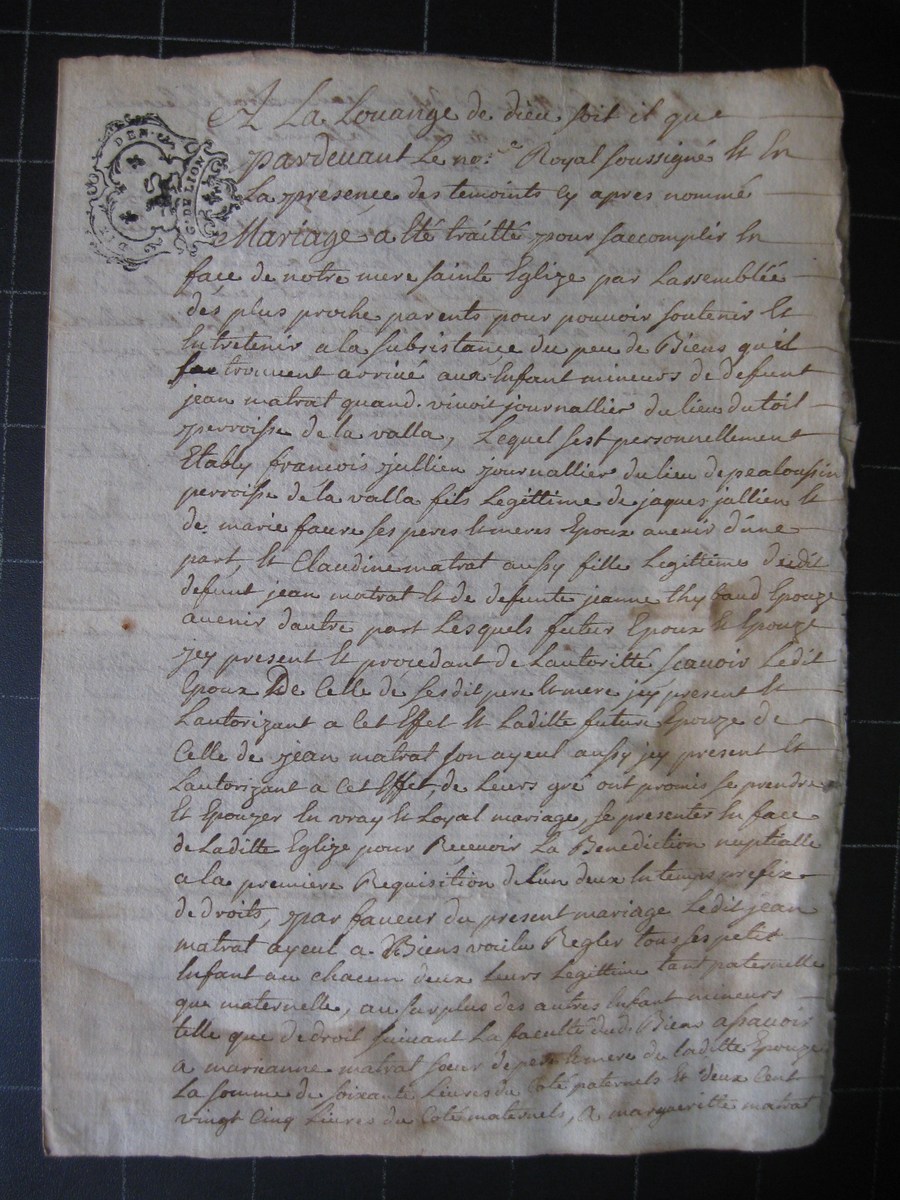 A La Louange de dieu soit il que
pardevant Le no.re Royal soussigné Et En
La presence des temoints cy apres nommé
Mariage a Eté traitté pour saccomplir En
face de notre mere sainte Eglize par Lassemblée
des plus proche parents pour pouvoir soutenir Et
Entretenir a la subsistance du peu de Biens quil
trouvent arrivé aux Enfant mineurs de defunt
jean matrat quand vivoit journallier du lieu du toil
perroisse de la valla, Lequel sest personnellement
Etably francois jullien journallier du lieu de pealoussin
perroisse de la valla fils Legittime de jaques jullien Et
de marie faure ses peres Et meres Epoux avenir dune
part, Et Claudine matrat aussy fille Legittime dudit
defunt jean matrat Et de defunte jeanne thybaud Epouze
avenir dautre part Lesquels futur Epoux Et Epouze
jey present Et procedant de Lautoritté scavoir Ledit
Epoux De Celle de sesdit pere Et mere jey present Et
Lautorizant a Cet Effet Et Laditte future Epouze de
Celle de jean matrat son ayeul aussy jey present Et
Lautorizant a Cet Effet, de Leurs gré ont promis se prendre
Et Epouzer En vray Et Loyal mariage, se presenter En face
de Laditte Eglize pour Recevoir La Benediction nuptialle
a la premiere Requisition de Lun deux En temps prefix
de droits, par faveur du present mariage Ledit jean
matrat ayeul a Biens voulu Regler tous ses petit
Enfant au chacun deux Leurs Legittime tant paternelle
que maternelle, au surplus des autres Enfant mineurs
telle que de droit suivant La faculté dud. Biens apavoir
a marianne matrat sœur de pere Et mere de laditte Epouze
La somme de soixante Livres du Coté paternels Et deux Cent
vingt Cinq Livres du Coté maternels, a margueritte matrat
G. DE LION